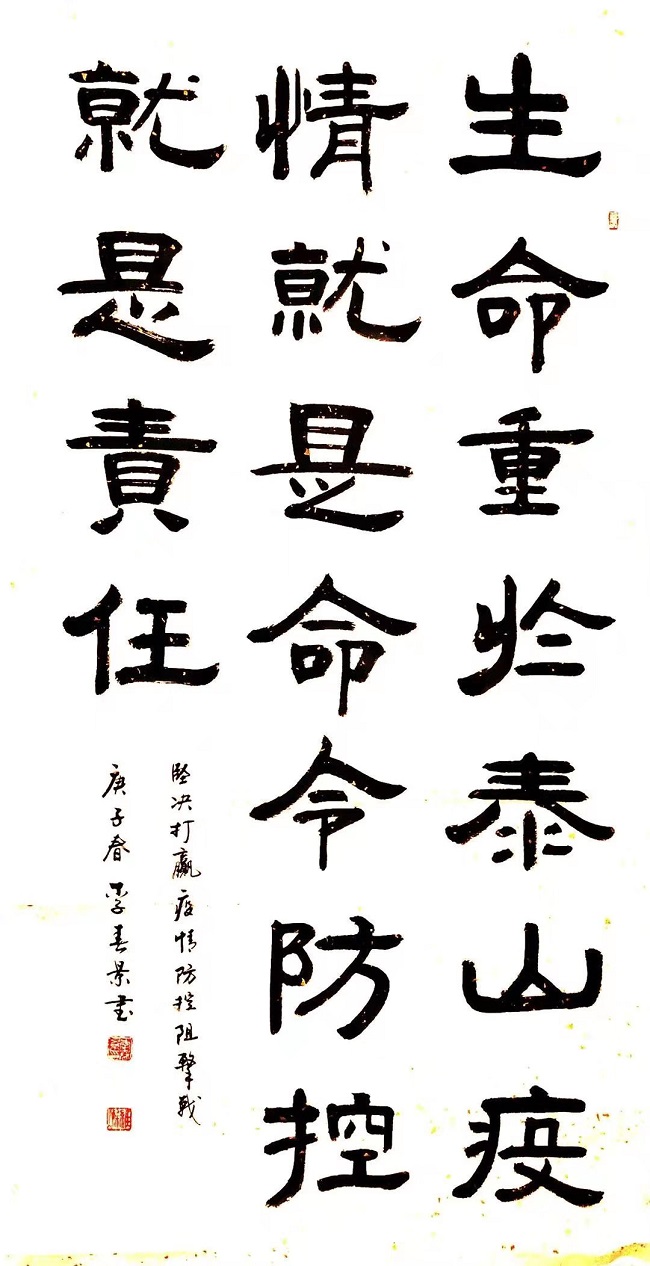 生命重於泰山疫
情就是命令防控
就是責任
堅决打贏疫情防控阻擊戰
庚子春 李春景书